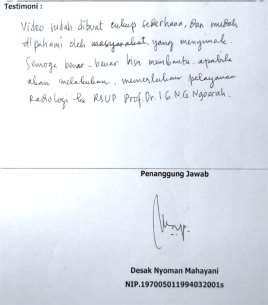 Testimoni :
Video sudah dibuat cukup sederhana, dan mudah
dipahami oleh masyarakat yang menyimak.
Semoga benar-benar bisa membantu apabila
akan melakukan, memerlukan pelayanan
Radiologi ke RSUP Prof. Dr. I G N G Ngoerah.
Penanggung Jawab
Desak Nyoman Mahayani
NIP.197005011994032001s